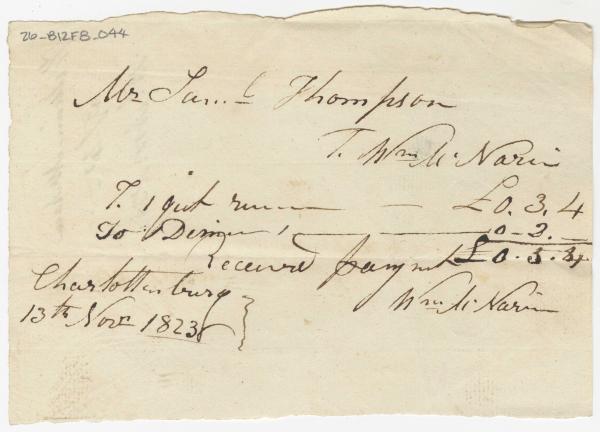 26-B12FB-044
Mr Saml. Thompson
T. Wm Mc Narin
T. 1 qut rum — £0. 3. 4
To Dinner, — 0 - 2. —
Received payment £0. 5. 4.
Wm Mc Narin
Charlottenburg
13th Novr 1823